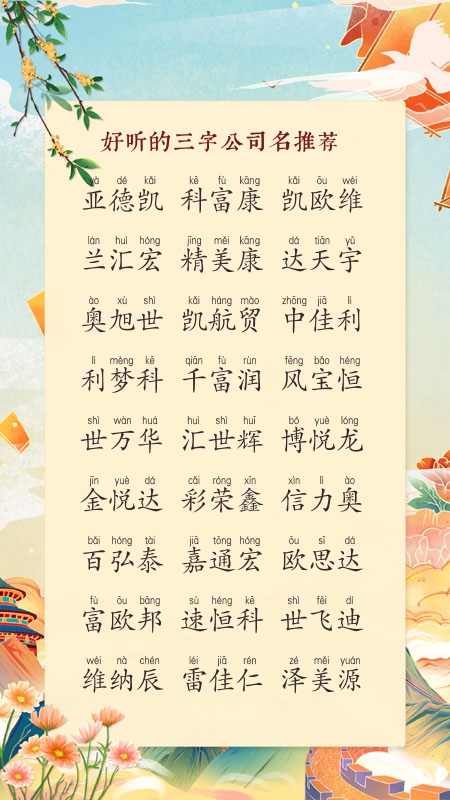 好听的三字公司名推荐
yà dé kǎi kē fù kāng kǎi ōu wéi
亚德凯 科富康 凯欧维
lán huì hóng jīng měi kāng dá tiān yǔ
兰汇宏 精美康 达天宇
ào xù shì kǎi háng mào zhōng jiā lì
奥旭世 凯航贸 中佳利
lì mèng kē qiān fù rùn fēng bǎo héng
利梦科 千富润 风宝恒
shì wàn huá huì shì huī bó yuè lóng
世万华 汇世辉 博悦龙
jīn yuè dá cǎi róng xīn xìn lì ào
金悦达 彩荣鑫 信力奥
bǎi hóng tài jiā tōng hóng ōu sī dá
百弘泰 嘉通宏 欧思达
fù ōu bāng sù héng kē shì fēi dí
富欧邦 速恒科 世飞迪
wéi nà chén léi jiā rén zé měi yuán
维纳辰 雷佳仁 泽美源